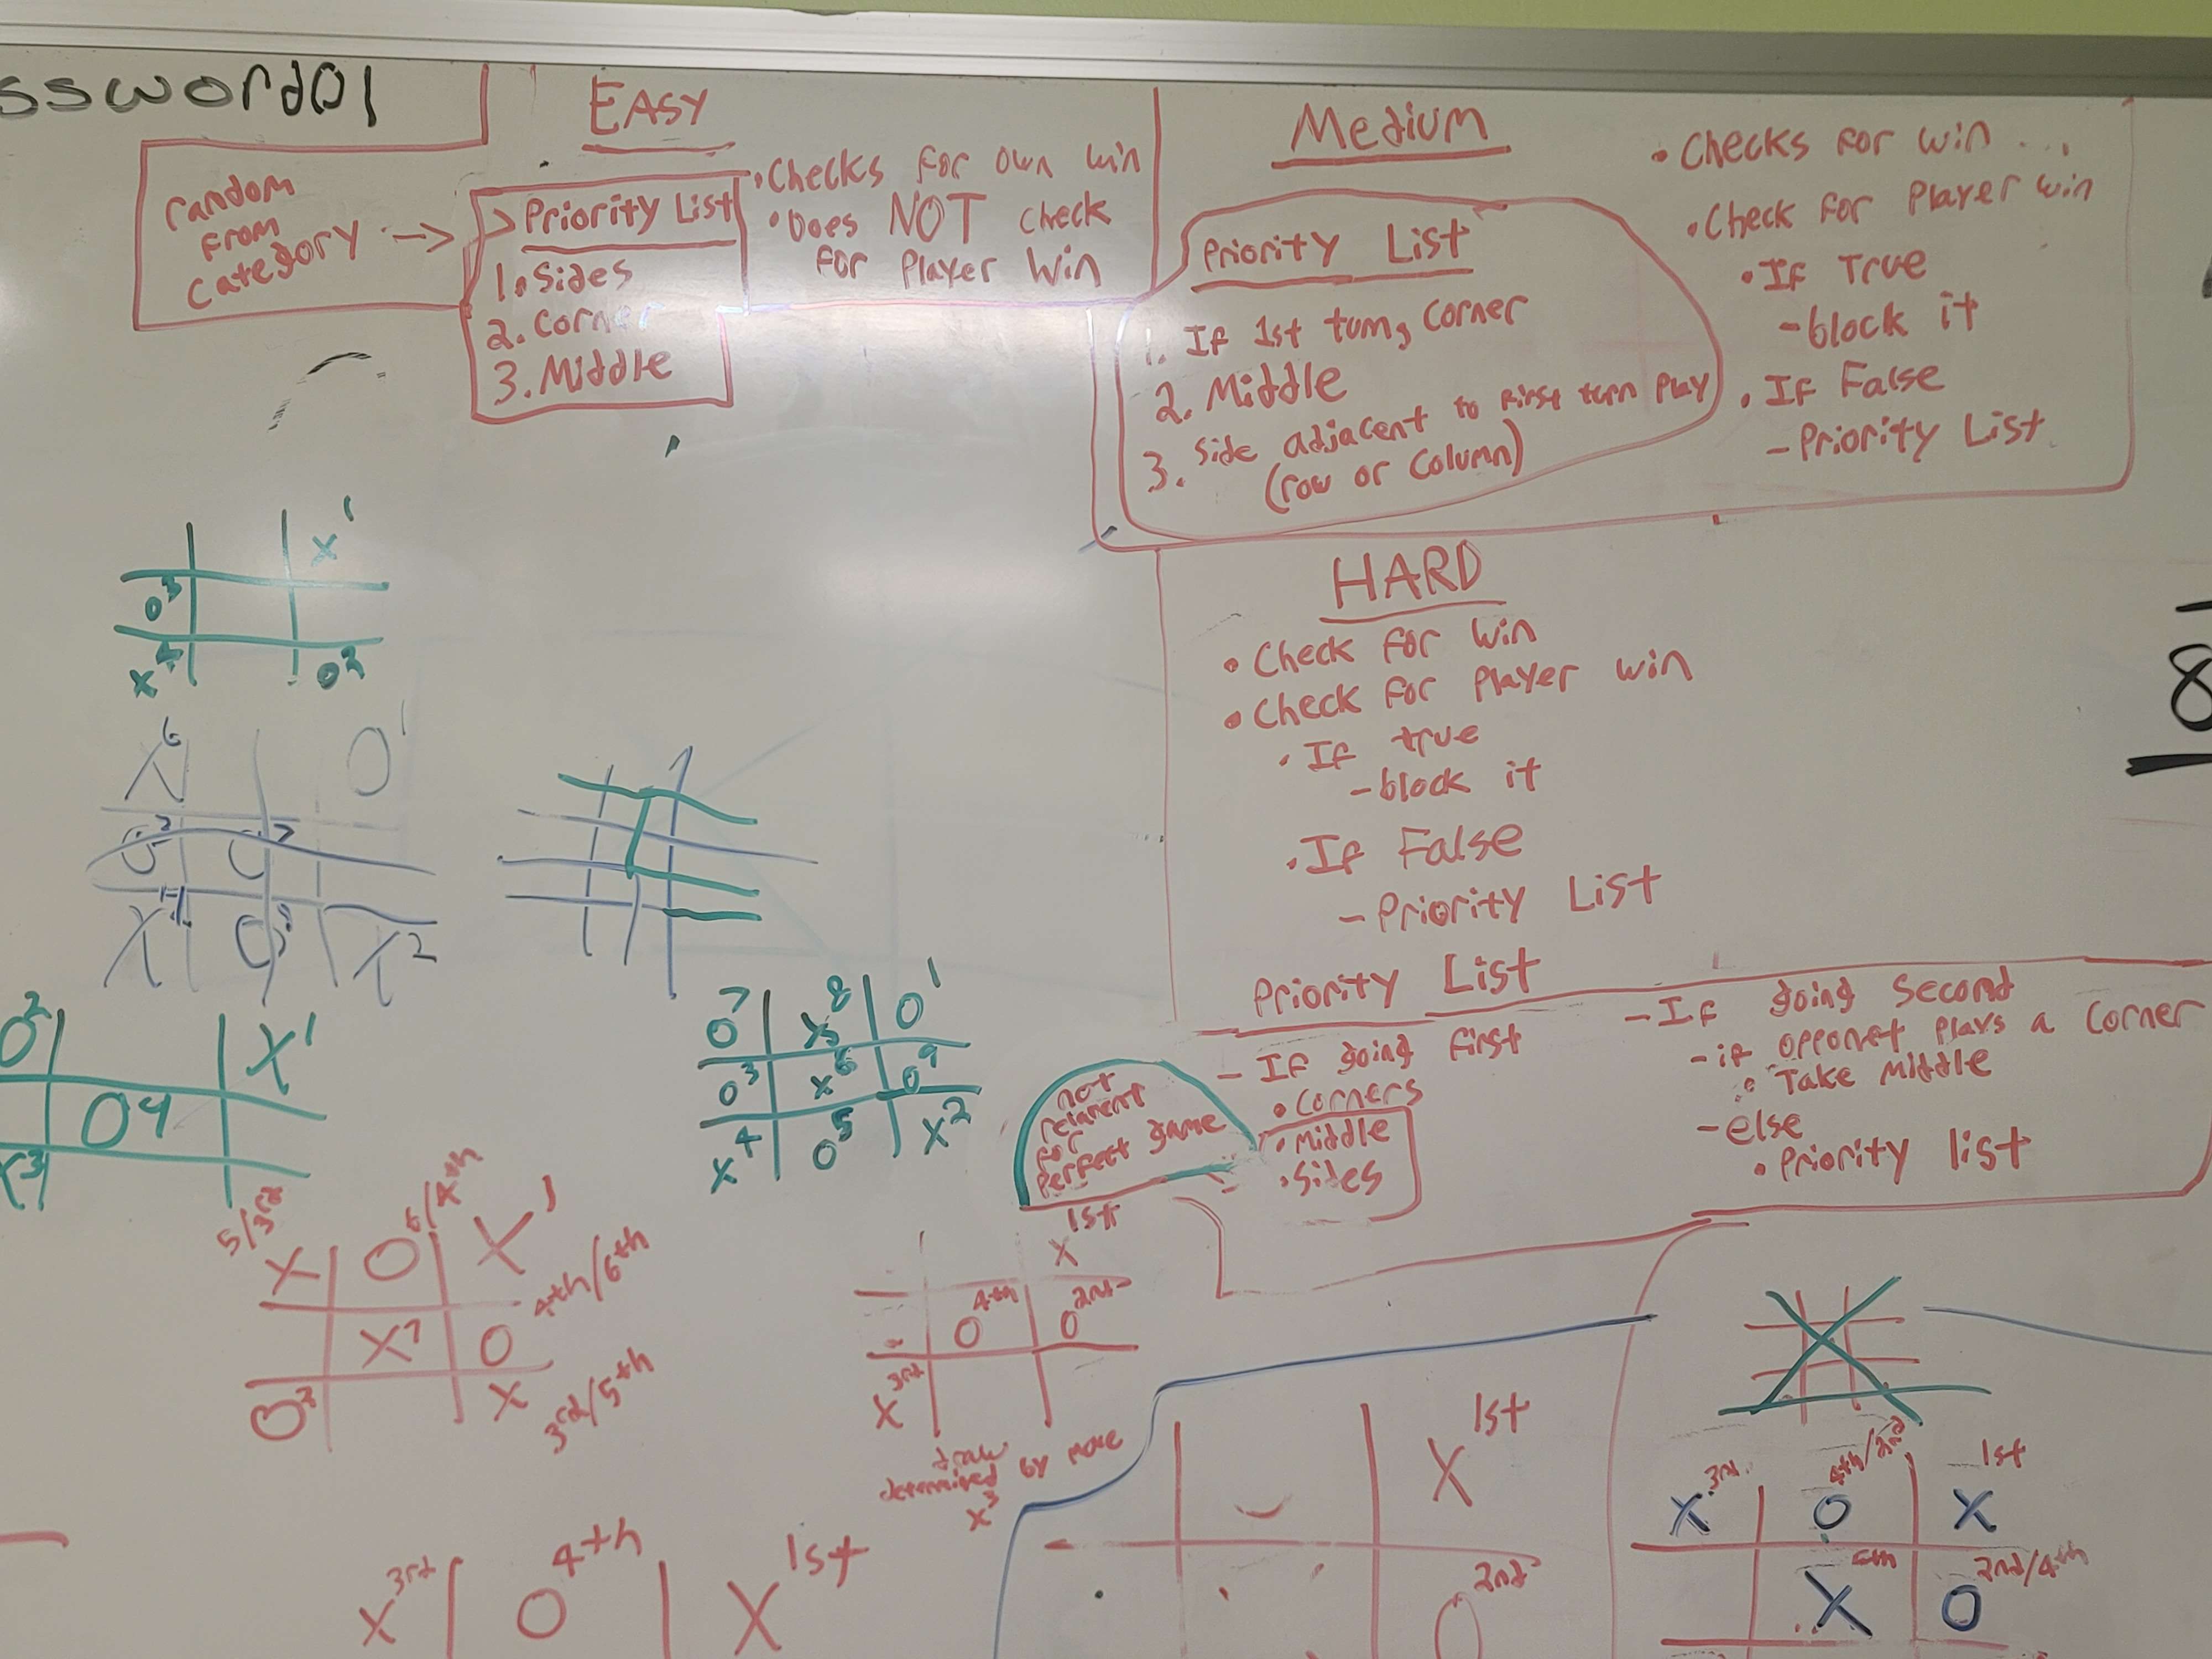 ssword01
EASY
random
from
category →
Priority List
1. Sides
2. Corner
3. Middle
• Checks for own win
• Does NOT check
for Player Win
Medium
Priority List
1. If 1st turn, Corner
2. Middle
3. Side adjacent to first turn Play
(row or Column)
• Checks for win ...
• Check for Player win
• If True
- block it
• If False
- Priority List
HARD
• Check for win
• Check for Player win
• If true
- block it
• If False
- Priority List
Priority List
- If going first
• Corners
• Middle
• Sides
not
relavent
for
perfect game
- If going Second
- if opponet plays a corner
• Take Middle
- else
• Priority list
18
X1
O3
X4 O2
X6 O1
X4 X2
O2 X1
O4
X3
O7 X8 O1
O3 X6 O9
X4 O5 X2
5/3rd 6/4th
X O X1
X7 O 4th/6th
O2 X 3rd/5th
1st
X
O4th O2nd
X3rd
draw
determined by move
X3
X3rd O4th X1st
X1st
O2nd
X3rd O4th/2nd X1st
X5th O2nd/4th